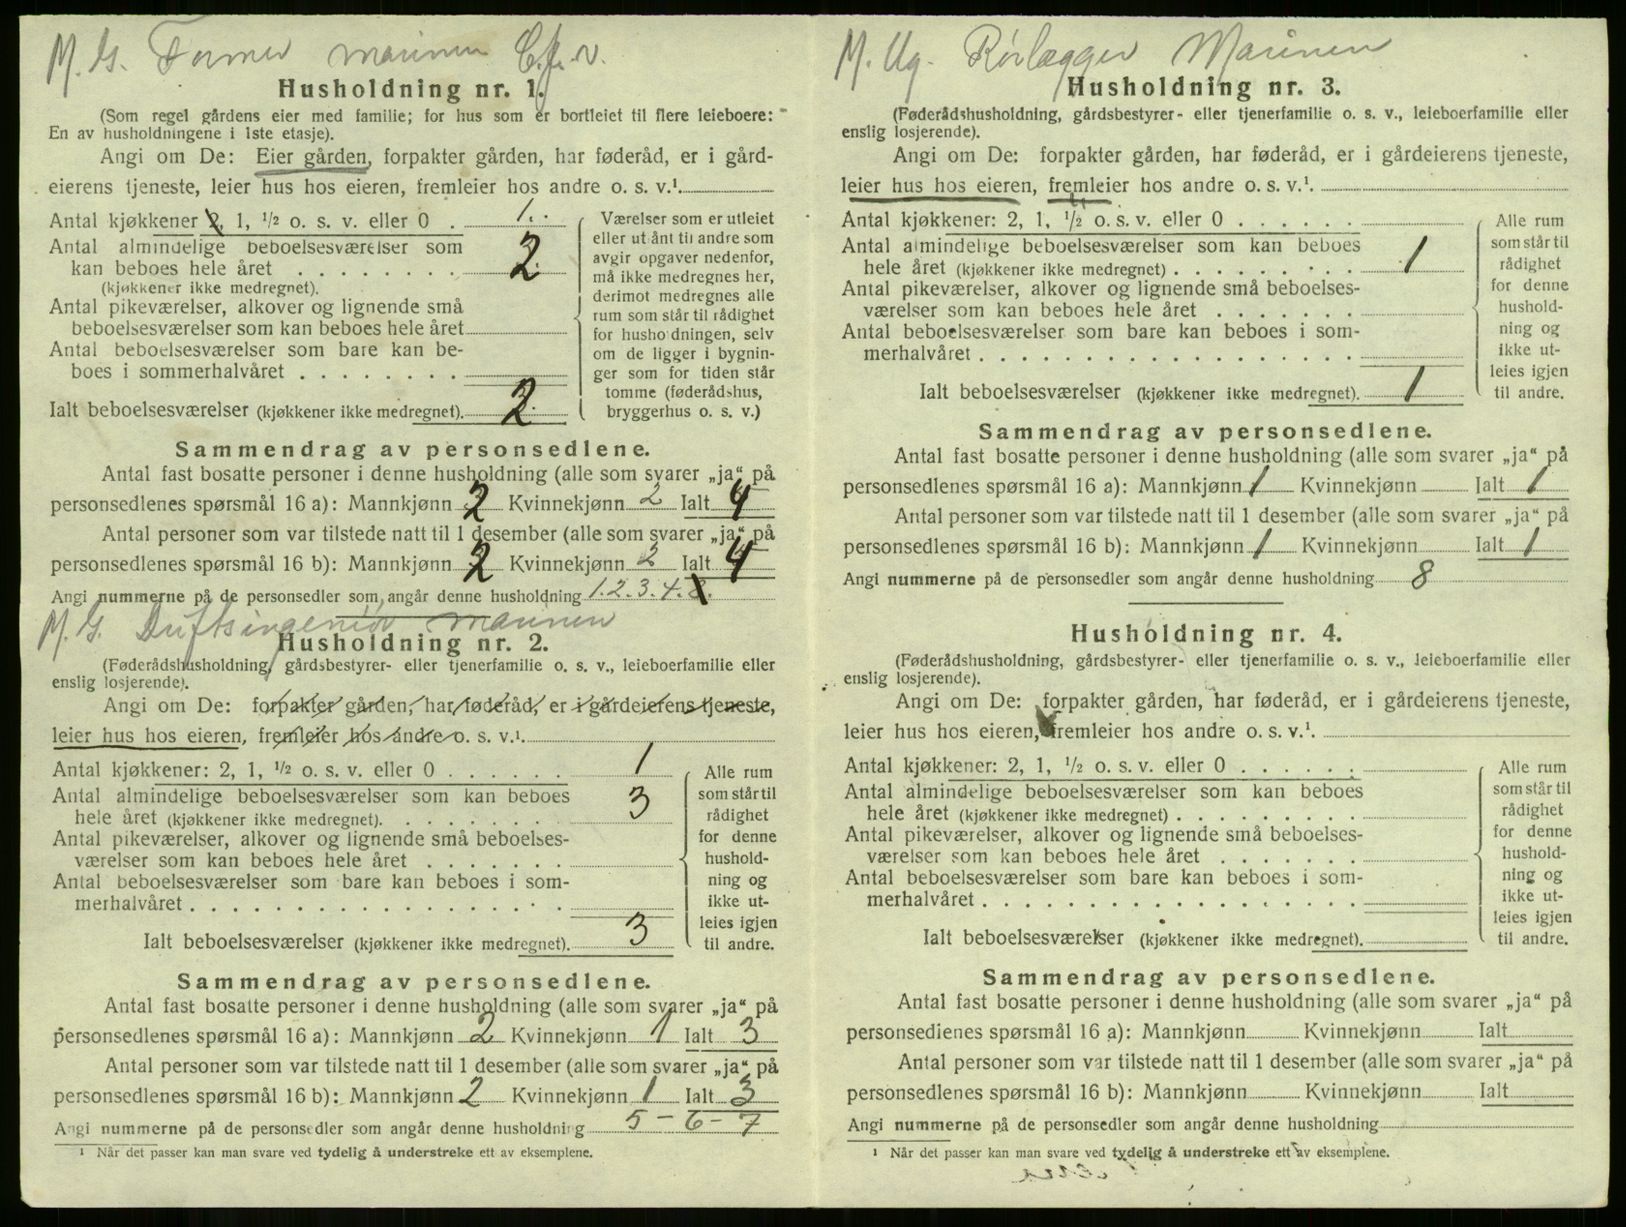 M. G. Former marinen C.f.v.
Husholdning nr. 1.
(Som regel gårdens eier med familie; for hus som er bortleiet til flere leieboere:
En av husholdningene i 1ste etasje).
Angi om De: Eier gården, forpakter gården, har føderåd, er i gård-
eierens tjeneste, leier hus hos eieren, fremleier hos andre o. s. v.¹.
Antal kjøkkener 2, 1, ½ o. s. v. eller 0 . 1.
Antal almindelige beboelsesværelser som
kan beboes hele året . . . . . . . . 2.
(kjøkkener ikke medregnet).
Antal pikeværelser, alkover og lignende små
beboelsesværelser som kan beboes hele året
Antal beboelsesværelser som bare kan be-
boes i sommerhalvåret . . . . . . . .
Ialt beboelsesværelser (kjøkkener ikke medregnet). 2.
Værelser som er utleiet
eller utlånt til andre som
avgir opgaver nedenfor,
må ikke medregnes her,
derimot medregnes alle
rum som står til rådighet
for husholdningen, selv
om de ligger i bygnin-
ger som for tiden står
tomme (føderådshus,
bryggerhus o. s. v.)
Sammendrag av personsedlene.
Antal fast bosatte personer i denne husholdning (alle som svarer „ja“ på
personsedlenes spørsmål 16 a): Mannkjønn 2 Kvinnekjønn 2 Ialt 4
Antal personer som var tilstede natt til 1 desember (alle som svarer „ja“ på
personsedlenes spørsmål 16 b): Mannkjønn 2 Kvinnekjønn 2 Ialt 4
Angi nummerne på de personsedler som angår denne husholdning 1.2.3.4.8.
M. G. Driftsingeniør marinen
Husholdning nr. 2.
(Føderådshusholdning, gårdsbestyrer- eller tjenerfamilie o. s. v., leieboerfamilie eller
enslig losjerende).
Angi om De: forpakter gården, har føderåd, er i gårdeierens tjeneste,
leier hus hos eieren, fremleier hos andre o. s. v.¹.
Antal kjøkkener: 2, 1, ½ o. s. v. eller 0 . . . . . . 1
Antal almindelige beboelsesværelser som kan beboes
hele året (kjøkkener ikke medregnet). . . . . . . . . 3
Antal pikeværelser, alkover og lignende små beboelses-
værelser som kan beboes hele året . . . . . . .
Antal beboelsesværelser som bare kan beboes i som-
merhalvåret . . . . . . . . . . . . . . . . . .
Ialt beboelsesværelser (kjøkkener ikke medregnet). 3
Alle rum
som står til
rådighet
for denne
hushold-
ning og
ikke ut-
leies igjen
til andre.
Sammendrag av personsedlene.
Antal fast bosatte personer i denne husholdning (alle som svarer „ja“ på
personsedlenes spørsmål 16 a): Mannkjønn 2 Kvinnekjønn 1 Ialt 3
Antal personer som var tilstede natt til 1 desember (alle som svarer „ja“ på
personsedlenes spørsmål 16 b): Mannkjønn 2 Kvinnekjønn 1 Ialt 3
Angi nummerne på de personsedler som angår denne husholdning 5 – 6 – 7
¹ Når det passer kan man svare ved tydelig å understreke ett av eksemplene.
M. Ug. Rørlægger Marinen
Husholdning nr. 3.
(Føderådshusholdning, gårdsbestyrer- eller tjenerfamilie o. s. v., leieboerfamilie eller
enslig losjerende).
Angi om De: forpakter gården, har føderåd, er i gårdeierens tjeneste,
leier hus hos eieren, fremleier hos andre o. s. v.¹.
Antal kjøkkener: 2, 1, ½ o. s. v. eller 0 . . . . . .
Antal almindelige beboelsesværelser som kan beboes
hele året (kjøkkener ikke medregnet) . . . . . . . . . 1
Antal pikeværelser, alkover og lignende små beboelses-
værelser som kan beboes hele året . . . . . . .
Antal beboelsesværelser som bare kan beboes i som-
merhalvåret . . . . . . . . . . . . . . . . . .
Ialt beboelsesværelser (kjøkkener ikke medregnet). 1
Alle rum
som står til
rådighet
for denne
hushold-
ning og
ikke ut-
leies igjen
til andre.
Sammendrag av personsedlene.
Antal fast bosatte personer i denne husholdning (alle som svarer „ja“ på
personsedlenes spørsmål 16 a): Mannkjønn 1 Kvinnekjønn Ialt 1
Antal personer som var tilstede natt til 1 desember (alle som svarer „ja“ på
personsedlenes spørsmål 16 b): Mannkjønn 1 Kvinnekjønn Ialt 1
Angi nummerne på de personsedler som angår denne husholdning 8
Husholdning nr. 4.
(Føderådshusholdning, gårdsbestyrer- eller tjenerfamilie o. s. v., leieboerfamilie eller
enslig losjerende).
Angi om De: forpakter gården, har føderåd, er i gårdeierens tjeneste,
leier hus hos eieren, fremleier hos andre o. s. v.¹.
Antal kjøkkener: 2, 1, ½ o. s. v. eller 0 . . . . . .
Antal almindelige beboelsesværelser som kan beboes
hele året (kjøkkener ikke medregnet) . . . . . . . . .
Antal pikeværelser, alkover og lignende små beboelses-
værelser som kan beboes hele året . . . . . . .
Antal beboelsesværelser som bare kan beboes i som-
merhalvåret . . . . . . . . . . . . . . . . . .
Ialt beboelsesværelser (kjøkkener ikke medregnet).
Alle rum
som står til
rådighet
for denne
hushold-
ning og
ikke ut-
leies igjen
til andre.
Sammendrag av personsedlene.
Antal fast bosatte personer i denne husholdning (alle som svarer „ja“ på
personsedlenes spørsmål 16 a): Mannkjønn Kvinnekjønn Ialt
Antal personer som var tilstede natt til 1 desember (alle som svarer „ja“ på
personsedlenes spørsmål 16 b): Mannkjønn Kvinnekjønn Ialt
Angi nummerne på de personsedler som angår denne husholdning
¹ Når det passer kan man svare ved tydelig å understreke ett av eksemplene.